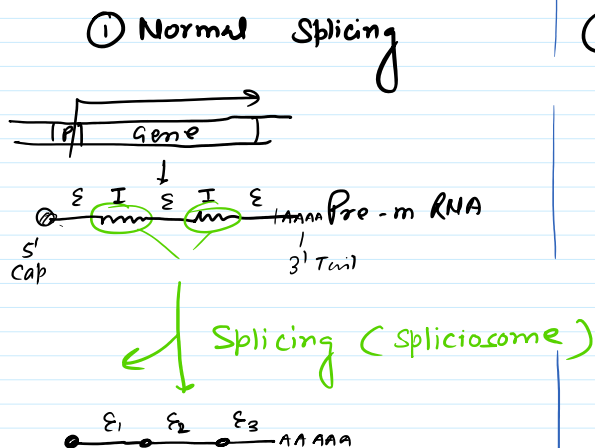 ① Normal Splicing
P Gene
ε I ε I ε
AAAA Pre-mRNA
5'
Cap
3' Tail
Splicing (Spliciosome)
ε1 ε2 ε3
AAAAA